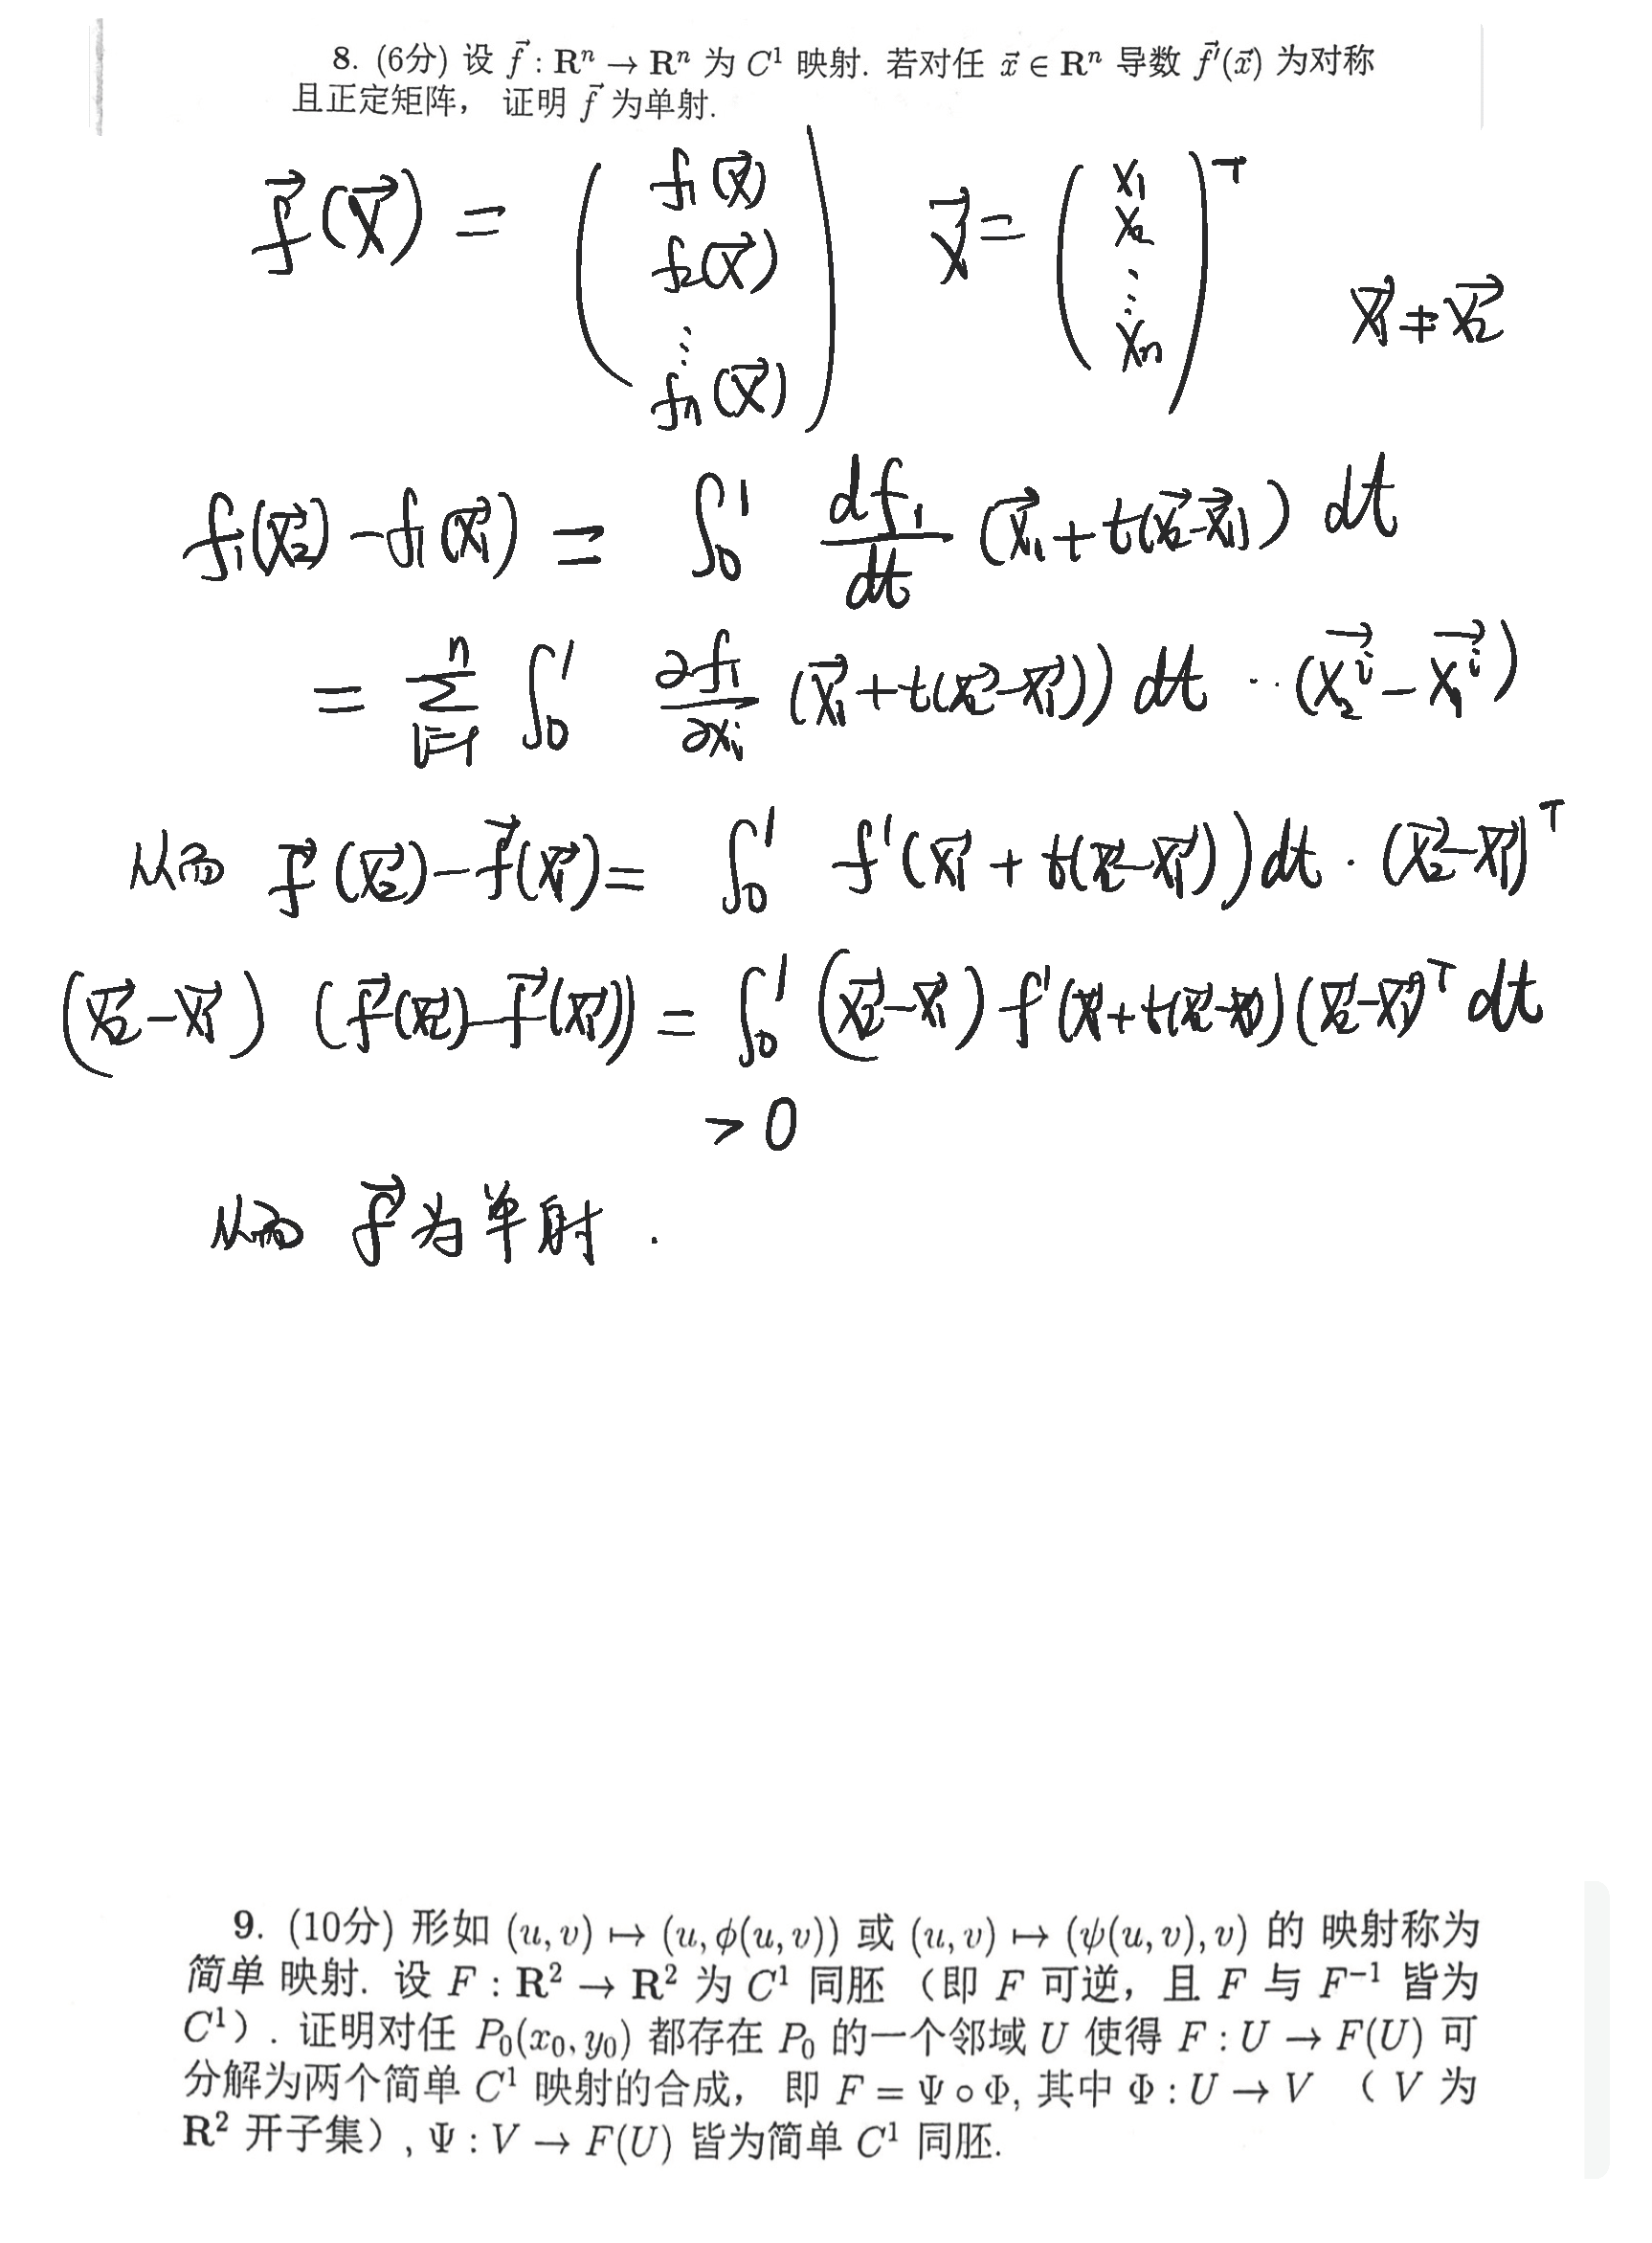 8. (6分) 设 f⃗ : Rⁿ → Rⁿ 为 C¹ 映射. 若对任 x⃗ ∈ Rⁿ 导数 f⃗′(x⃗) 为对称
且正定矩阵， 证明 f⃗ 为单射.
f⃗(x⃗) = ( f₁(x⃗) f₂(x⃗) ⋮ fₙ(x⃗) ) x⃗ = ( x₁ x₂ ⋮ xₙ )ᵀ x⃗₁ ≠ x⃗₂
f₁(x⃗₂) − f₁(x⃗₁) = ∫₀¹ df₁/dt (x⃗₁ + t(x⃗₂−x⃗₁)) dt
= ∑ᵢ₌₁ⁿ ∫₀¹ ∂f₁/∂xᵢ (x⃗₁ + t(x⃗₂−x⃗₁)) dt ·· (x⃗₂ⁱ − x⃗₁ⁱ)
从而 f⃗(x⃗₂) − f⃗(x⃗₁) = ∫₀¹ f′(x⃗₁ + t(x⃗₂−x⃗₁)) dt · (x⃗₂−x⃗₁)ᵀ
(x⃗₂−x⃗₁) (f⃗(x⃗₂)−f⃗(x⃗₁)) = ∫₀¹ (x⃗₂−x⃗₁) f′(x⃗₁+t(x⃗₂−x⃗₁)) (x⃗₂−x⃗₁)ᵀ dt
> 0
从而 f⃗ 为单射 .
9. (10分) 形如 (u, v) ↦ (u, ϕ(u, v)) 或 (u, v) ↦ (ψ(u, v), v) 的 映射称为
简单 映射. 设 F : R² → R² 为 C¹ 同胚 （即 F 可逆，且 F 与 F⁻¹ 皆为
C¹）. 证明对任 P₀(x₀, y₀) 都存在 P₀ 的一个邻域 U 使得 F : U → F(U) 可
分解为两个简单 C¹ 映射的合成， 即 F = Ψ ∘ Φ, 其中 Φ : U → V （ V 为
R² 开子集）, Ψ : V → F(U) 皆为简单 C¹ 同胚.